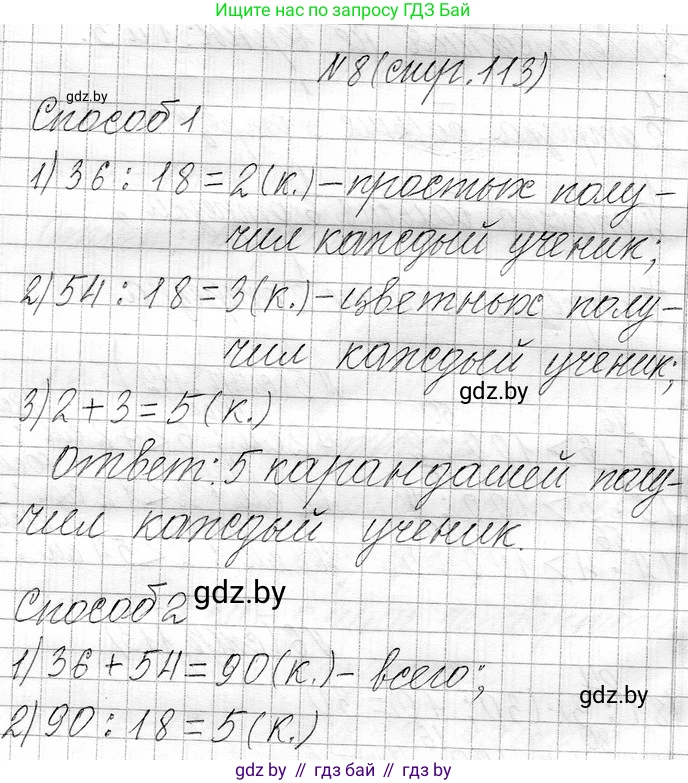 Ищите нас по запросу ГДЗ Бай
N8(стр.113)
gdz.by
Способ 1
1) 36 : 18 = 2 (к.) – простых полу-
чил каждый ученик;
2) 54 : 18 = 3 (к.) – цветных полу-
чил каждый ученик;
gdz.by
3) 2 + 3 = 5 (к.)
Ответ: 5 карандашей полу-
чил каждый ученик.
Способ 2
gdz.by
1) 36 + 54 = 90 (к.) – всего;
gdz.by
2) 90 : 18 = 5 (к.)
gdz.by // гдз.бай // gdz.by